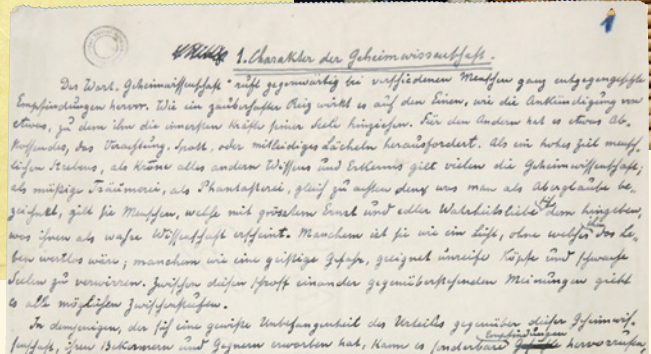 1
1. Charakter der Geheimwissenschaft.
Das Wort „Geheimwissenschaft" ruft gegenwärtig bei verschiedenen Menschen ganz entgegengesetzte
Empfindungen hervor. Wie ein zauberhafter Reiz wirkt es auf den Einen, wie die Ankündigung von
etwas, zu dem ihn die innersten Kräfte seiner Seele hinziehen. Für den Andern hat es etwas Ab-
stossendes, das Verachtung, Spott, oder mitleidiges Lächeln herausfordert. Als ein hohes Ziel mensch-
lichen Strebens, als Krone alles andern Wissens und Erkennens gilt vielen die Geheimwissenschaft;
als müßige Träumerei, als Phantasterei, gleich zu achten dem, was man als Aberglaube be-
zeichnet, gilt sie Menschen, welche mit grösstem Ernst und edler Wahrheitsliebe sich dem hingeben,
was ihnen als wahre Wissenschaft erscheint. Manchem ist sie wie ein Licht, ohne welches ihm das Le-
ben wertlos wäre; manchem wie eine geistige Gefahr, geeignet unreife Köpfe und schwache
Seelen zu verwirren. Zwischen diesen schroff einander gegenüberstehenden Meinungen giebt
es alle möglichen Zwischenstufen.
In demjenigen, der sich eine gewisse Unbefangenheit des Urteiles gegenüber dieser Geheimwis-
senschaft, ihren Bekennern und Gegnern erworben hat, kann es sonderbare Empfindungen hervorrufen,